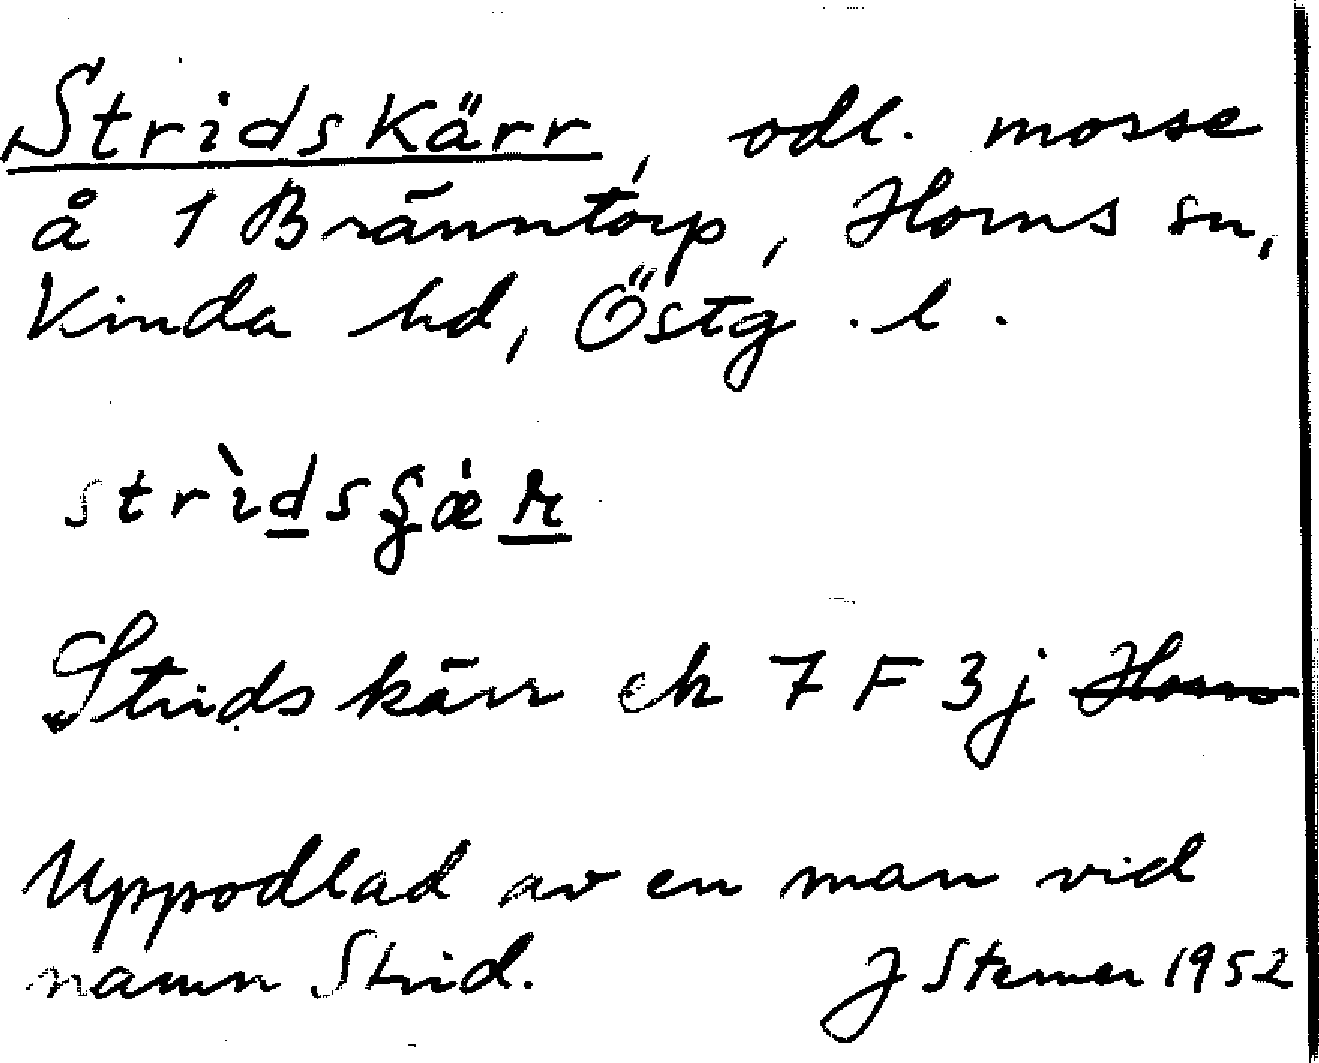 Stridskärr, odl. mosse
å 1 Bränntorp, Horns sn,
Kinda hd, Östg. l.
Stridskärr ek 7 F 3j Horns
Uppodlad av en man vid
namn Strid. J 1952